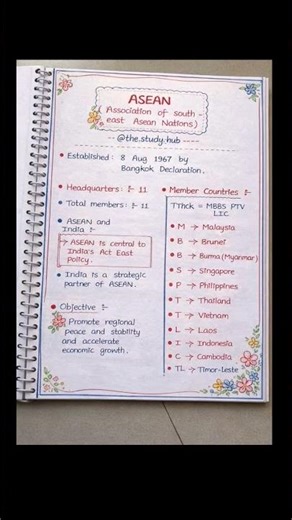 ASEAN
(Association of south-
east Asean Nations)
@the.study.hub
• Established : 8 Aug 1967 by
Bangkok Declaration.
• Headquarters :- 11
• Total members :- 11
• ASEAN and
India :-
→ ASEAN is central to
India's Act East
Policy.
• India is a strategic
partner of ASEAN.
• Objective :-
Promote regional
peace and stability
and accelerate
economic growth.
• Member Countries :-
TThck = MBBS PTV
LIC
• M → Malaysia
• B → Brunei
• B → Buma (Myanmar)
• S → Singapore
• P → Philippines
• T → Thailand
• T → Vietnam
• L → Laos
• I → Indonesia
• C → Cambodia
• TL → Timor-Leste